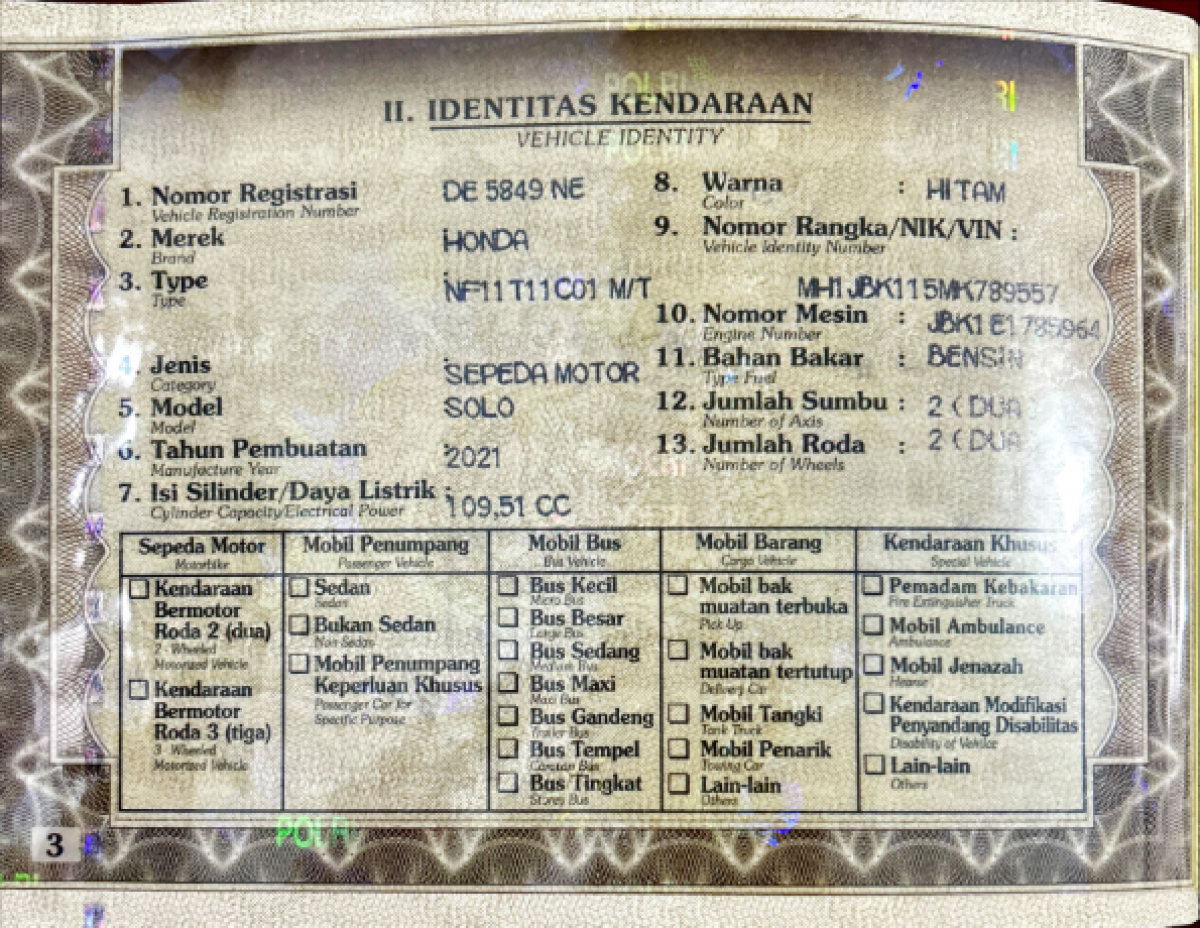 II. IDENTITAS KENDARAAN
VEHICLE IDENTITY
1. Nomor Registrasi DE 5849 NE
Vehicle Registration Number
2. Merek : HONDA
Brand
3. Type : NF11T11C01 M/T
Type
4. Jenis : SEPEDA MOTOR
Category
5. Model SOLO
Model
6. Tahun Pembuatan : 2021
Manufacture Year
7. Isi Silinder/Daya Listrik : 109,51 CC
Cylinder Capacity/Electrical Power
8. Warna : HITAM
Color
9. Nomor Rangka/NIK/VIN :
Vehicle Identity Number
MH1JBK115MK789557
10. Nomor Mesin : JBK1E1785964
Engine Number
11. Bahan Bakar : BENSIN
Type Fuel
12. Jumlah Sumbu : 2 ( DUA
Number of Axis
13. Jumlah Roda : 2 ( DUA
Number of Wheels
Sepeda Motor
Motorbike
Kendaraan
Bermotor
Roda 2 (dua)
2 - Wheeled
Motorized Vehicle
Kendaraan
Bermotor
Roda 3 (tiga)
3 - Wheeled
Motorized Vehicle
Mobil Penumpang
Passenger Vehicle
Sedan
Sedan
Bukan Sedan
Non Sedan
Mobil Penumpang
Keperluan Khusus
Passenger Car for
Specific Purpose
Mobil Bus
Bus Vehicle
Bus Kecil
Micro Bus
Bus Besar
Large Bus
Bus Sedang
Medium Bus
Bus Maxi
Maxi Bus
Bus Gandeng
Trailer Bus
Bus Tempel
Caravan Bus
Bus Tingkat
Storey Bus
Mobil Barang
Cargo Vehicle
Mobil bak
muatan terbuka
Pick-Up
Mobil bak
muatan tertutup
Delivery Car
Mobil Tangki
Tank Truck
Mobil Penarik
Towing Car
Lain-lain
Others
Kendaraan Khusus
Special Vehicle
Pemadam Kebakaran
Fire Extinguisher Truck
Mobil Ambulance
Ambulance
Mobil Jenazah
Hearse
Kendaraan Modifikasi
Penyandang Disabilitas
Disability of Vehilce
Lain-lain
Others
3
POLRI